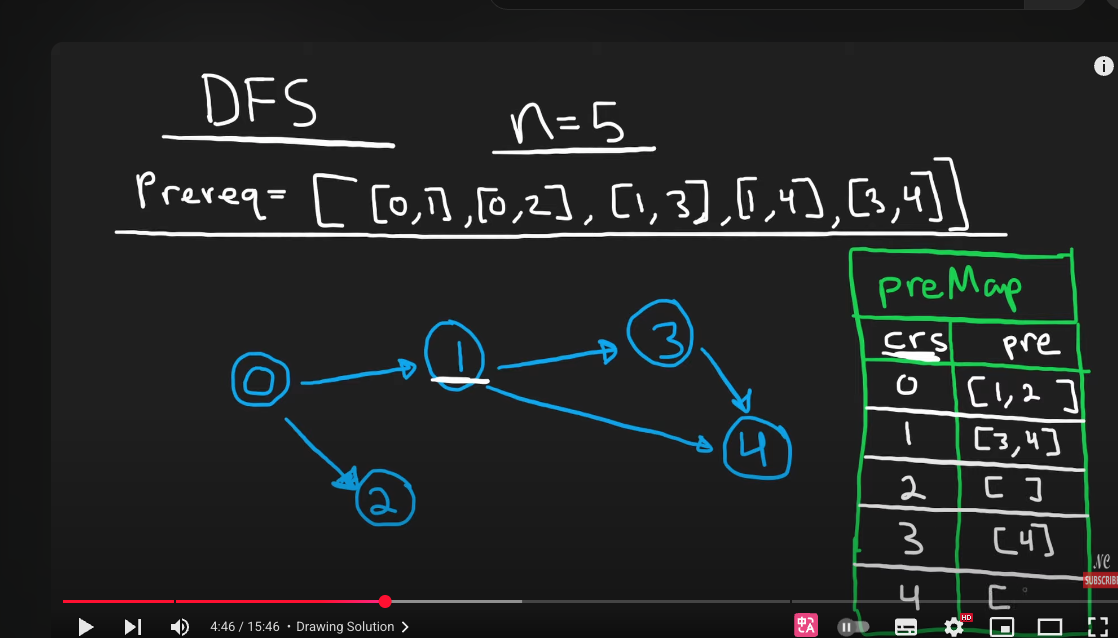 DFS
n=5
Prereq= [ [0,1],[0,2], [1,3],[1,4],[3,4]]
preMap
crs pre
0 [1,2 ]
1 [3,4]
2 [ ]
3 [4]
4 [
0
1
2
3
4
NC
SUBSCRIBE
4:46 / 15:46 • Drawing Solution >
中A
HD